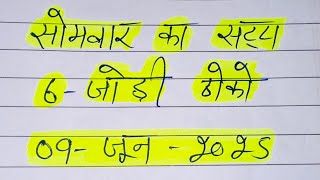 सोमवार का सट्टा
6- जोड़ी ठोको
09- जून - २०२५